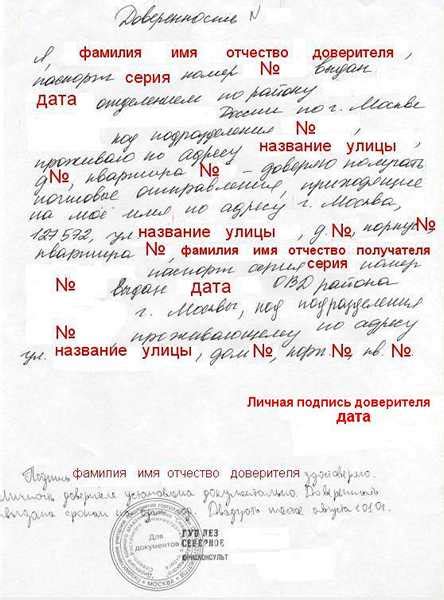 Доверенность N
Я, фамилия имя отчество доверителя,
паспорт серия номер № выдан
дата отделением по району
России по г. Москве
код подразделения №,
проживаю по адресу название улицы,
д №, квартира № - доверяю получать
почтовые отправления, приходящие
на моё имя по адресу г. Москва,
127572, ул название улицы, д. №, корпус №
квартира №, фамилия имя отчество получателя
паспорт серия серия номер
№ выдан дата ОВД района
г. Москвы, код подразделения
№, проживающему по адресу
ул. название улицы, дом №, корп № кв. №.
Личная подпись доверителя
дата
Подпись фамилия имя отчество доверителя удостоверяю.
Личность доверителя установлена документально. Доверенность
выдана сроком на
августа
Для
документов
ГУП ДЕЗ
СЕВЕРНОЕ
ЮРИСКОНСУЛЬТ
МОСКВА